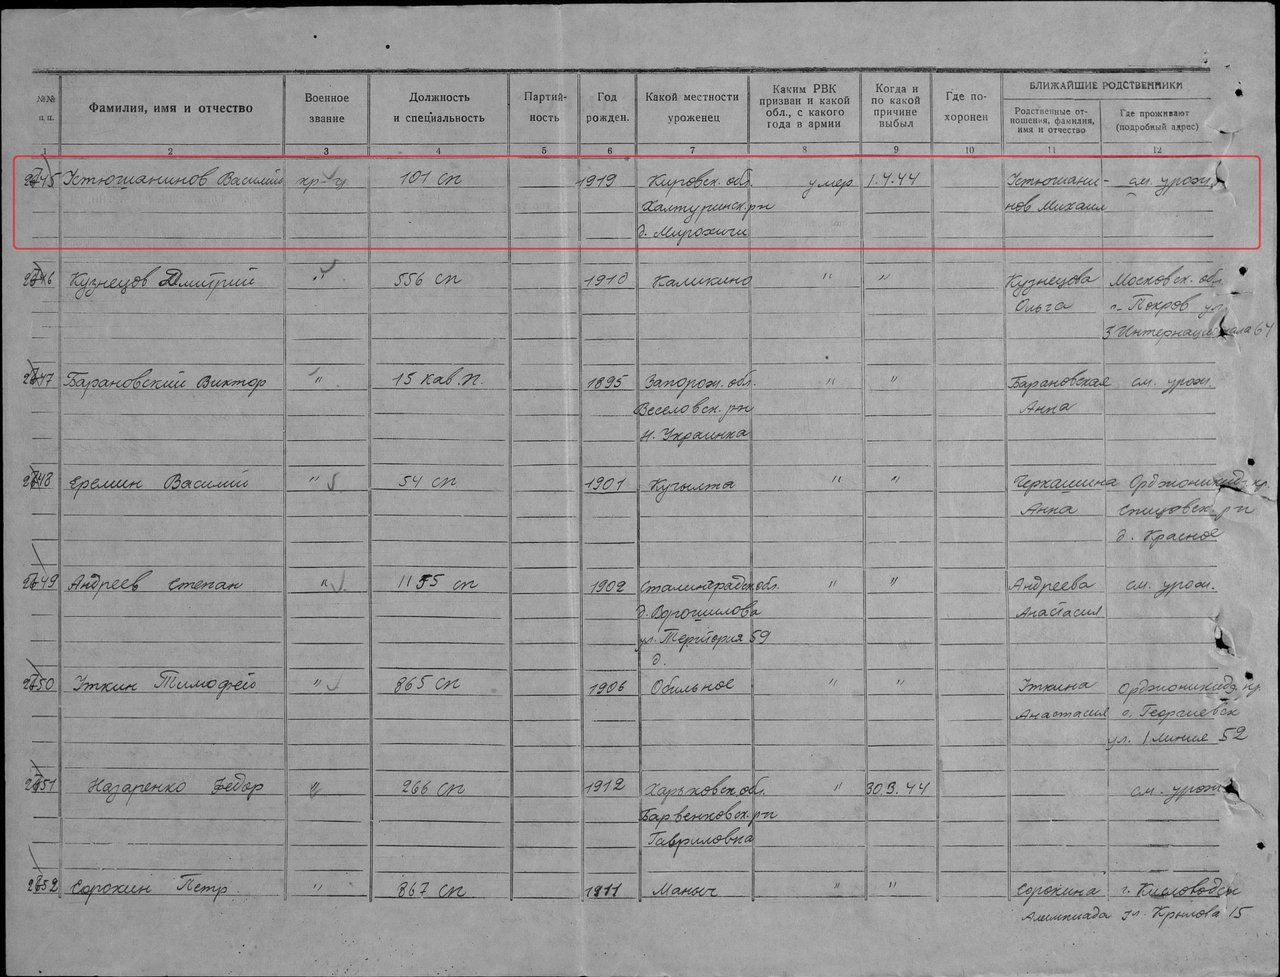 №№ п.п. Фамилия, имя и отчество Военное звание Должность и специальность Партийность Год рожден. Какой местности уроженец Каким РВК призван и какой обл., с какого года в армии Когда и по какой причине выбыл Где похоронен БЛИЖАЙШИЕ РОДСТВЕННИКИ Родственные отношения, фамилия, имя и отчество Где проживают (подробный адрес)
1 2 3 4 5 6 7 8 9 10 11 12
Устюжанинов Василий кр-ц 101 сп 1919 Кировск. обл. умер 1.4.44 Устюжани- см. урож.
Халтуринск. рн нов Михаил
д. Мирохичи "
Кузнецов Дмитрий " 556 сп 1910 Каликино " " Кузнецова Московск. обл.
Ольга г. Покров ул
3 Интернационала 64
Барановский Виктор " 15 кав. п. 1895 Запорож. обл. " " Барановская см. урож.
Веселовск. рн Анна
Н. Украинка
Еремин Василий " 54 сп 1901 Кугылта " " Черкашина Орджоникидз. кр.
Анна Спицовск. рн
д. Красное
Андреев Степан " 1155 сп 1902 Сталинградск. обл. " " Андреева см. урож.
д. Ворошилова Анастасия
ул. Територия 59
д.
Уткин Тимофей " 865 сп 1906 Обильное " " Уткина Орджоникидз. кр.
Анастасия г. Георгиевск
ул. 1 линия 52
Назаренко Федор " 266 сп 1912 Харьковск. обл. " 30.3.44 см. урож.
Барвенковск. рн
Гавриловка
Сорокин Петр. " 867 сп 1911 Маныч " " Сорокина г. Кисловодск
Алимпиада ул. Крылова 15